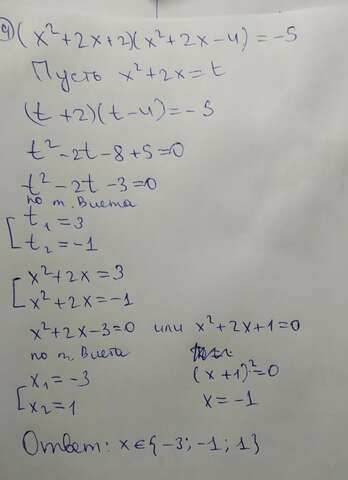 4) (x²+2x+2)(x²+2x-4)=-5
Пусть x²+2x=t
(t+2)(t-4)=-5
t²-2t-8+5=0
t²-2t-3=0
по т. Виета
[t₁=3
t₂=-1
[x²+2x=3
x²+2x=-1
x²+2x-3=0 или x²+2x+1=0
по т. Виета
[x₁=-3 (x+1)²=0
x₂=1 x=-1
Ответ: x∈{-3;-1;1}